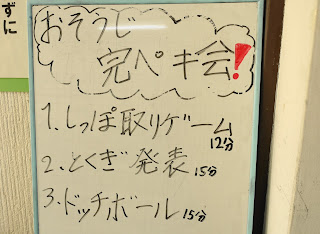 ずに
おそうじ
完ペキ会!
1.しっぽ取りゲーム
12分
2.とくぎ発表 15分
3.ドッチボール 15分